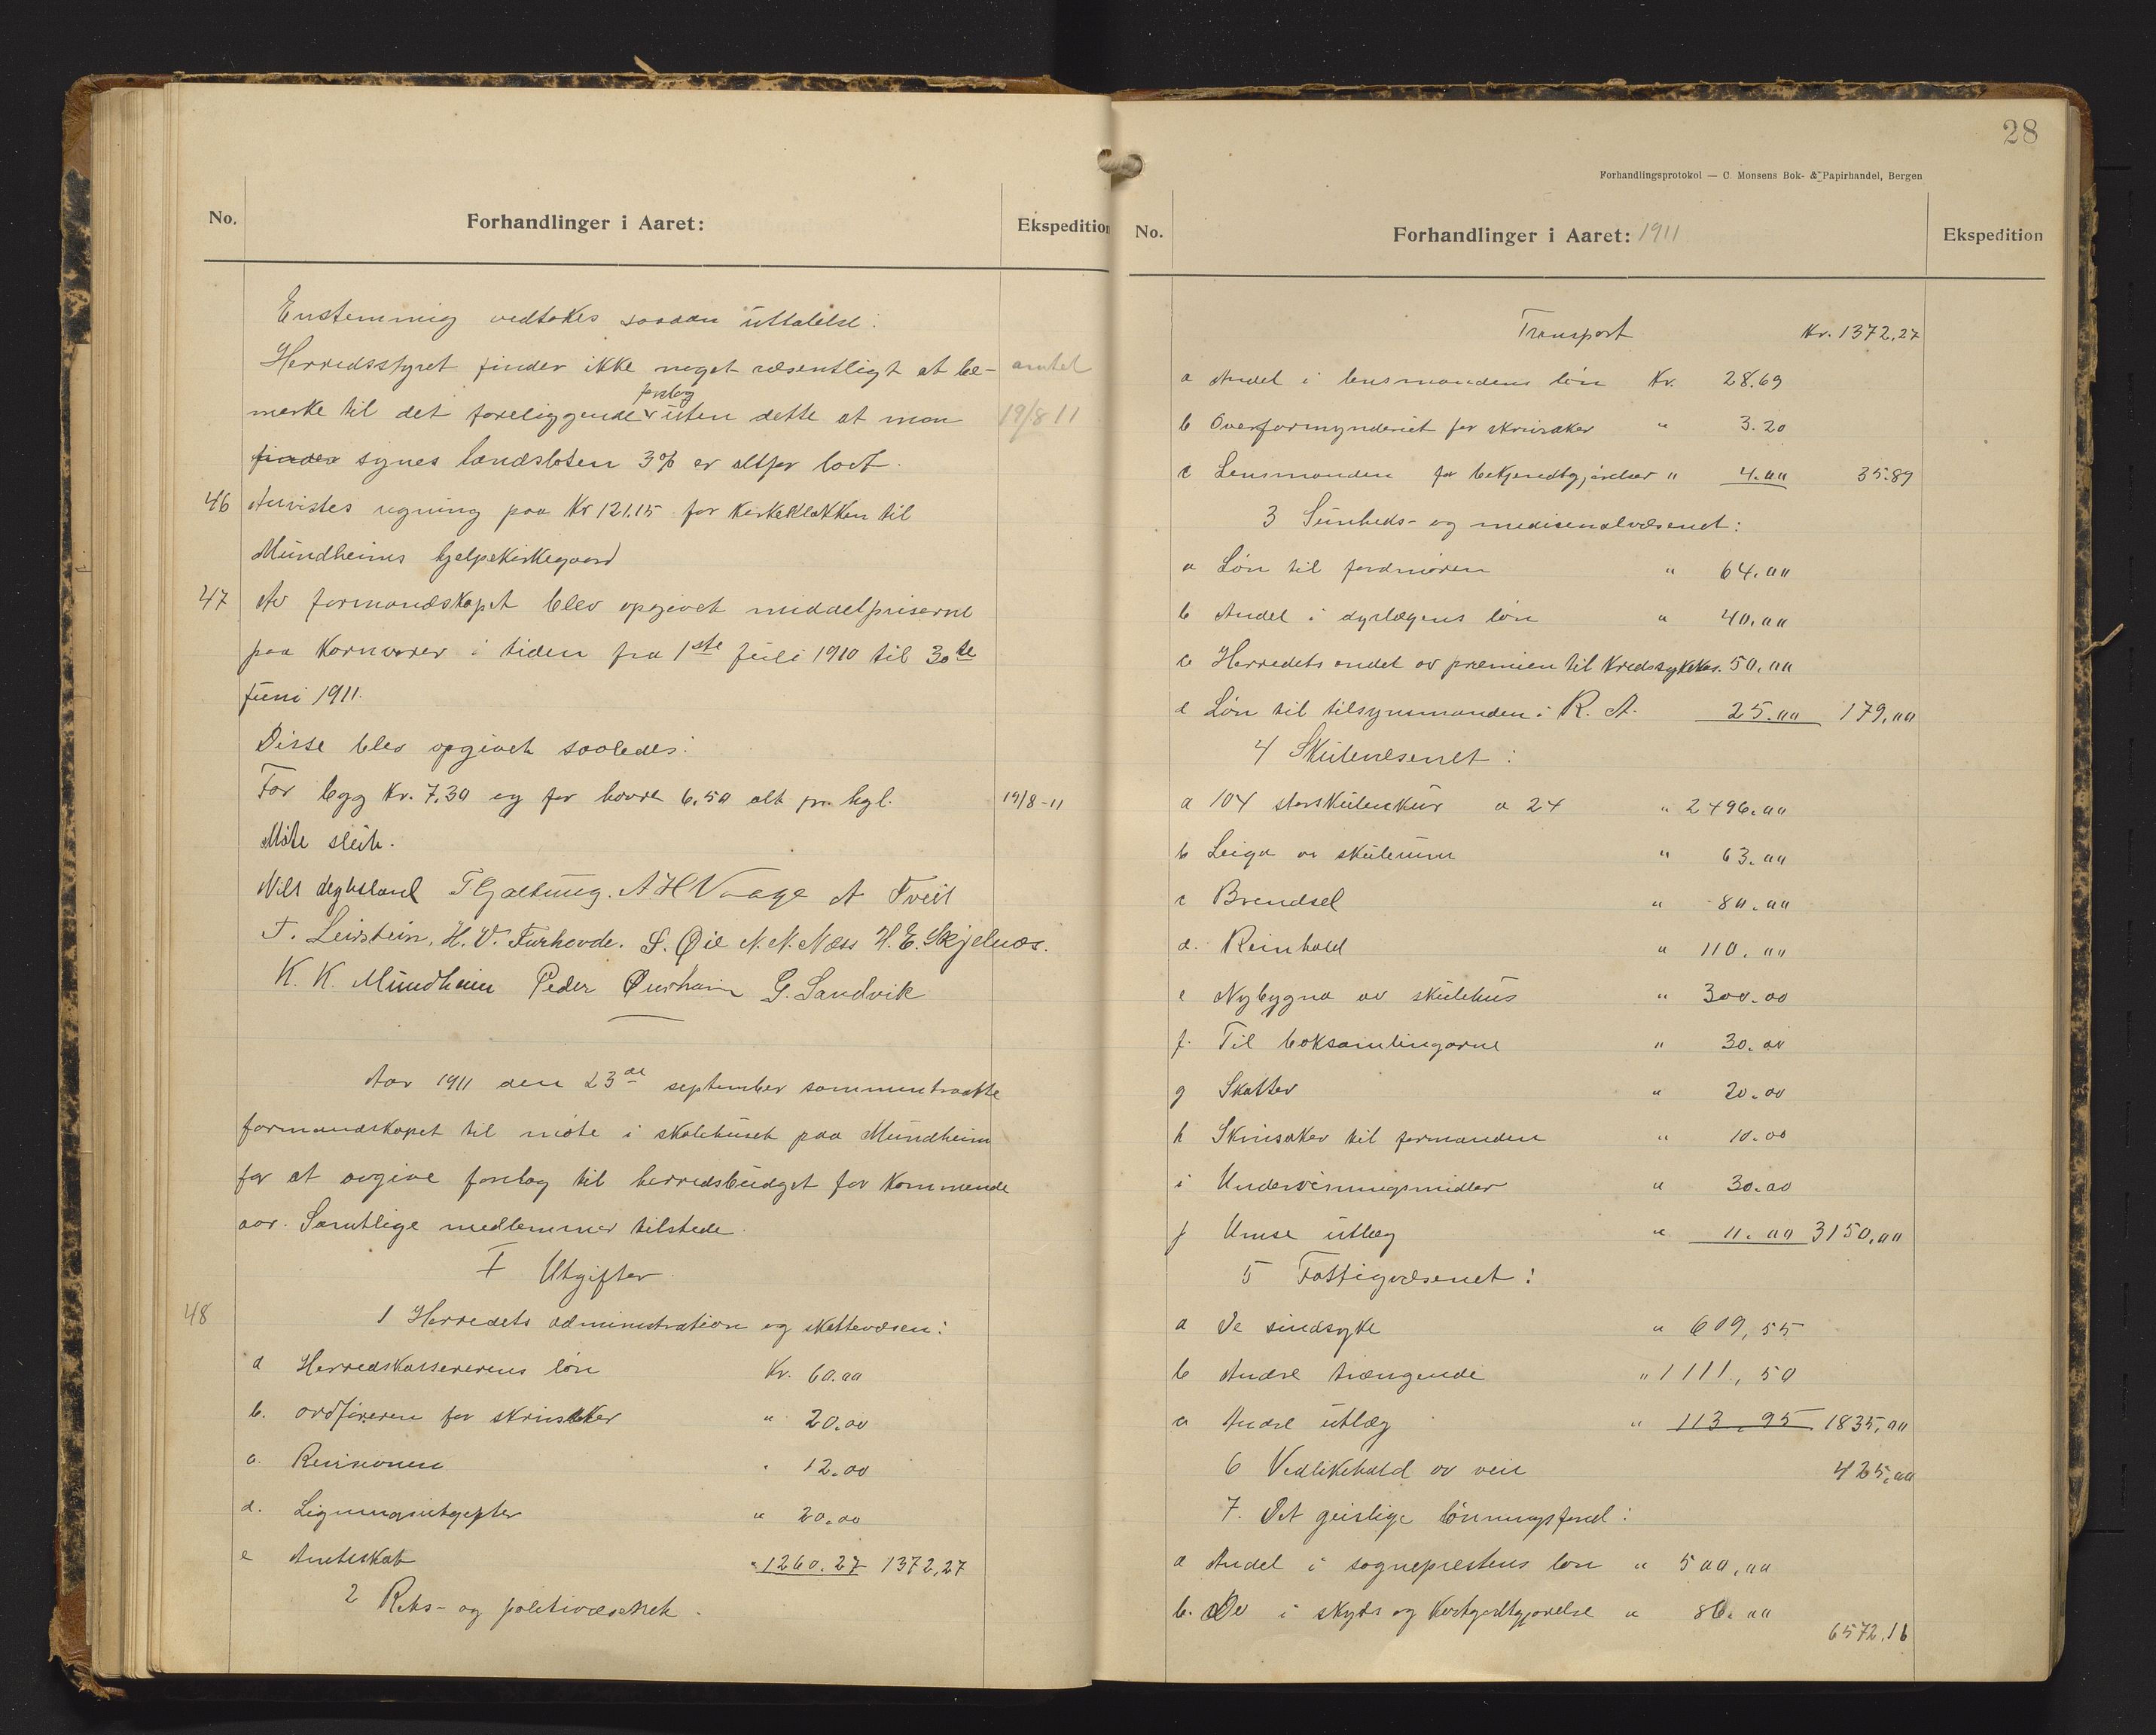 No. Forhandlinger i Aaret: Ekspedition
Enstemmig vedtokes saadan uttalelse:
Herredsstyret finder ikke noget væsentligt at be- amtet
forslag
merke til det foreliggende uten dette at man 19/8 11
finder synes landsloten 3% er altfor lavt.
46 Anvistes regning paa Kr 121.15 for kirkeklokken til
Mundheims hjelpekirkegaard
47 Av formandskapet blev opgivet middelpriserne
paa kornvarer i tiden fra 1ste juli 1910 til 30te
juni 1911.
Disse blev opgivet saaledes:
For bygg Kr. 7.30 og for havre 6.50 alt pr. hgl. 19/8-11
Møte slut.
Nils T Galtung. A H Vaage A Tveit
T. Leirstein. H. V. Furhovde. S. Øie N. N. Næss H. E. Skjelnæs.
K. K. Mundheim Peder G. Sandvik
Aar 1911 den 23de september sammentraatte
formandskapet til møte i skolehuset paa Mundheim
for at avgive forslag til herredsbudget for kommende
aar. Samtlige medlemmer tilstede.
I Utgifter
48 1 Herredets administration og skattevæsen:
a Herredskassererens løn Kr. 60.00
b. ordføreren for skrivsaker " 20.00
c. Revisionen " 12.00
d. Ligningsutgifter " 20.00
e Amtsskat " 1260.27 1372,27
2 Rets- og politivæsenet.
28
Forhandlingsprotokol — C. Monsens Bok- & Papirhandel, Bergen
No. Forhandlinger i Aaret: 1911 Ekspedition
Transport Kr. 1372,27
a Andel i lensmandens løn Kr. 28.69
b Overformynderiet for skrivsaker " 3.20
c Lensmanden for bekjendtgjørelser " 4.00 35.89
3 Sunheds- og medisenalvæsenet:
a Løn til jordmoren " 64.00
b Andel i dyrlægens løn " 40.00
c Herredets andel av premien til Kredssykekas. 50.00
d Løn til tilsynsmanden i R. A. 25.00 179,00
4 Skulevæsenet:
a 104 storskulevikur a 24 " 2496.00
b Leiga av skulerum " 63.00
c Brendsel " 80.00
d. Reinhald " 110.00
e Nybygna av skulehus " 300.00
f. Til boksamlingarne " 30.00
g Skatter " 20.00
h Skrivsaker til formanden " 10.00
i Undervisningsmidler " 30.00
j Umse utlæg " 11.00 3150,00
5 Fattigvæsenet:
a De sindsyke " 609,55
b Andre trængende " 1111,50
c Andre utlæg " 113.95 1835,00
6 Vedlikehald av veie 425,00
7. Det geislige lønningsfond:
a Andel i sogneprestens løn " 500,00
b. Do i skyds og kostgodtgjørelse " 86.00
6572,16